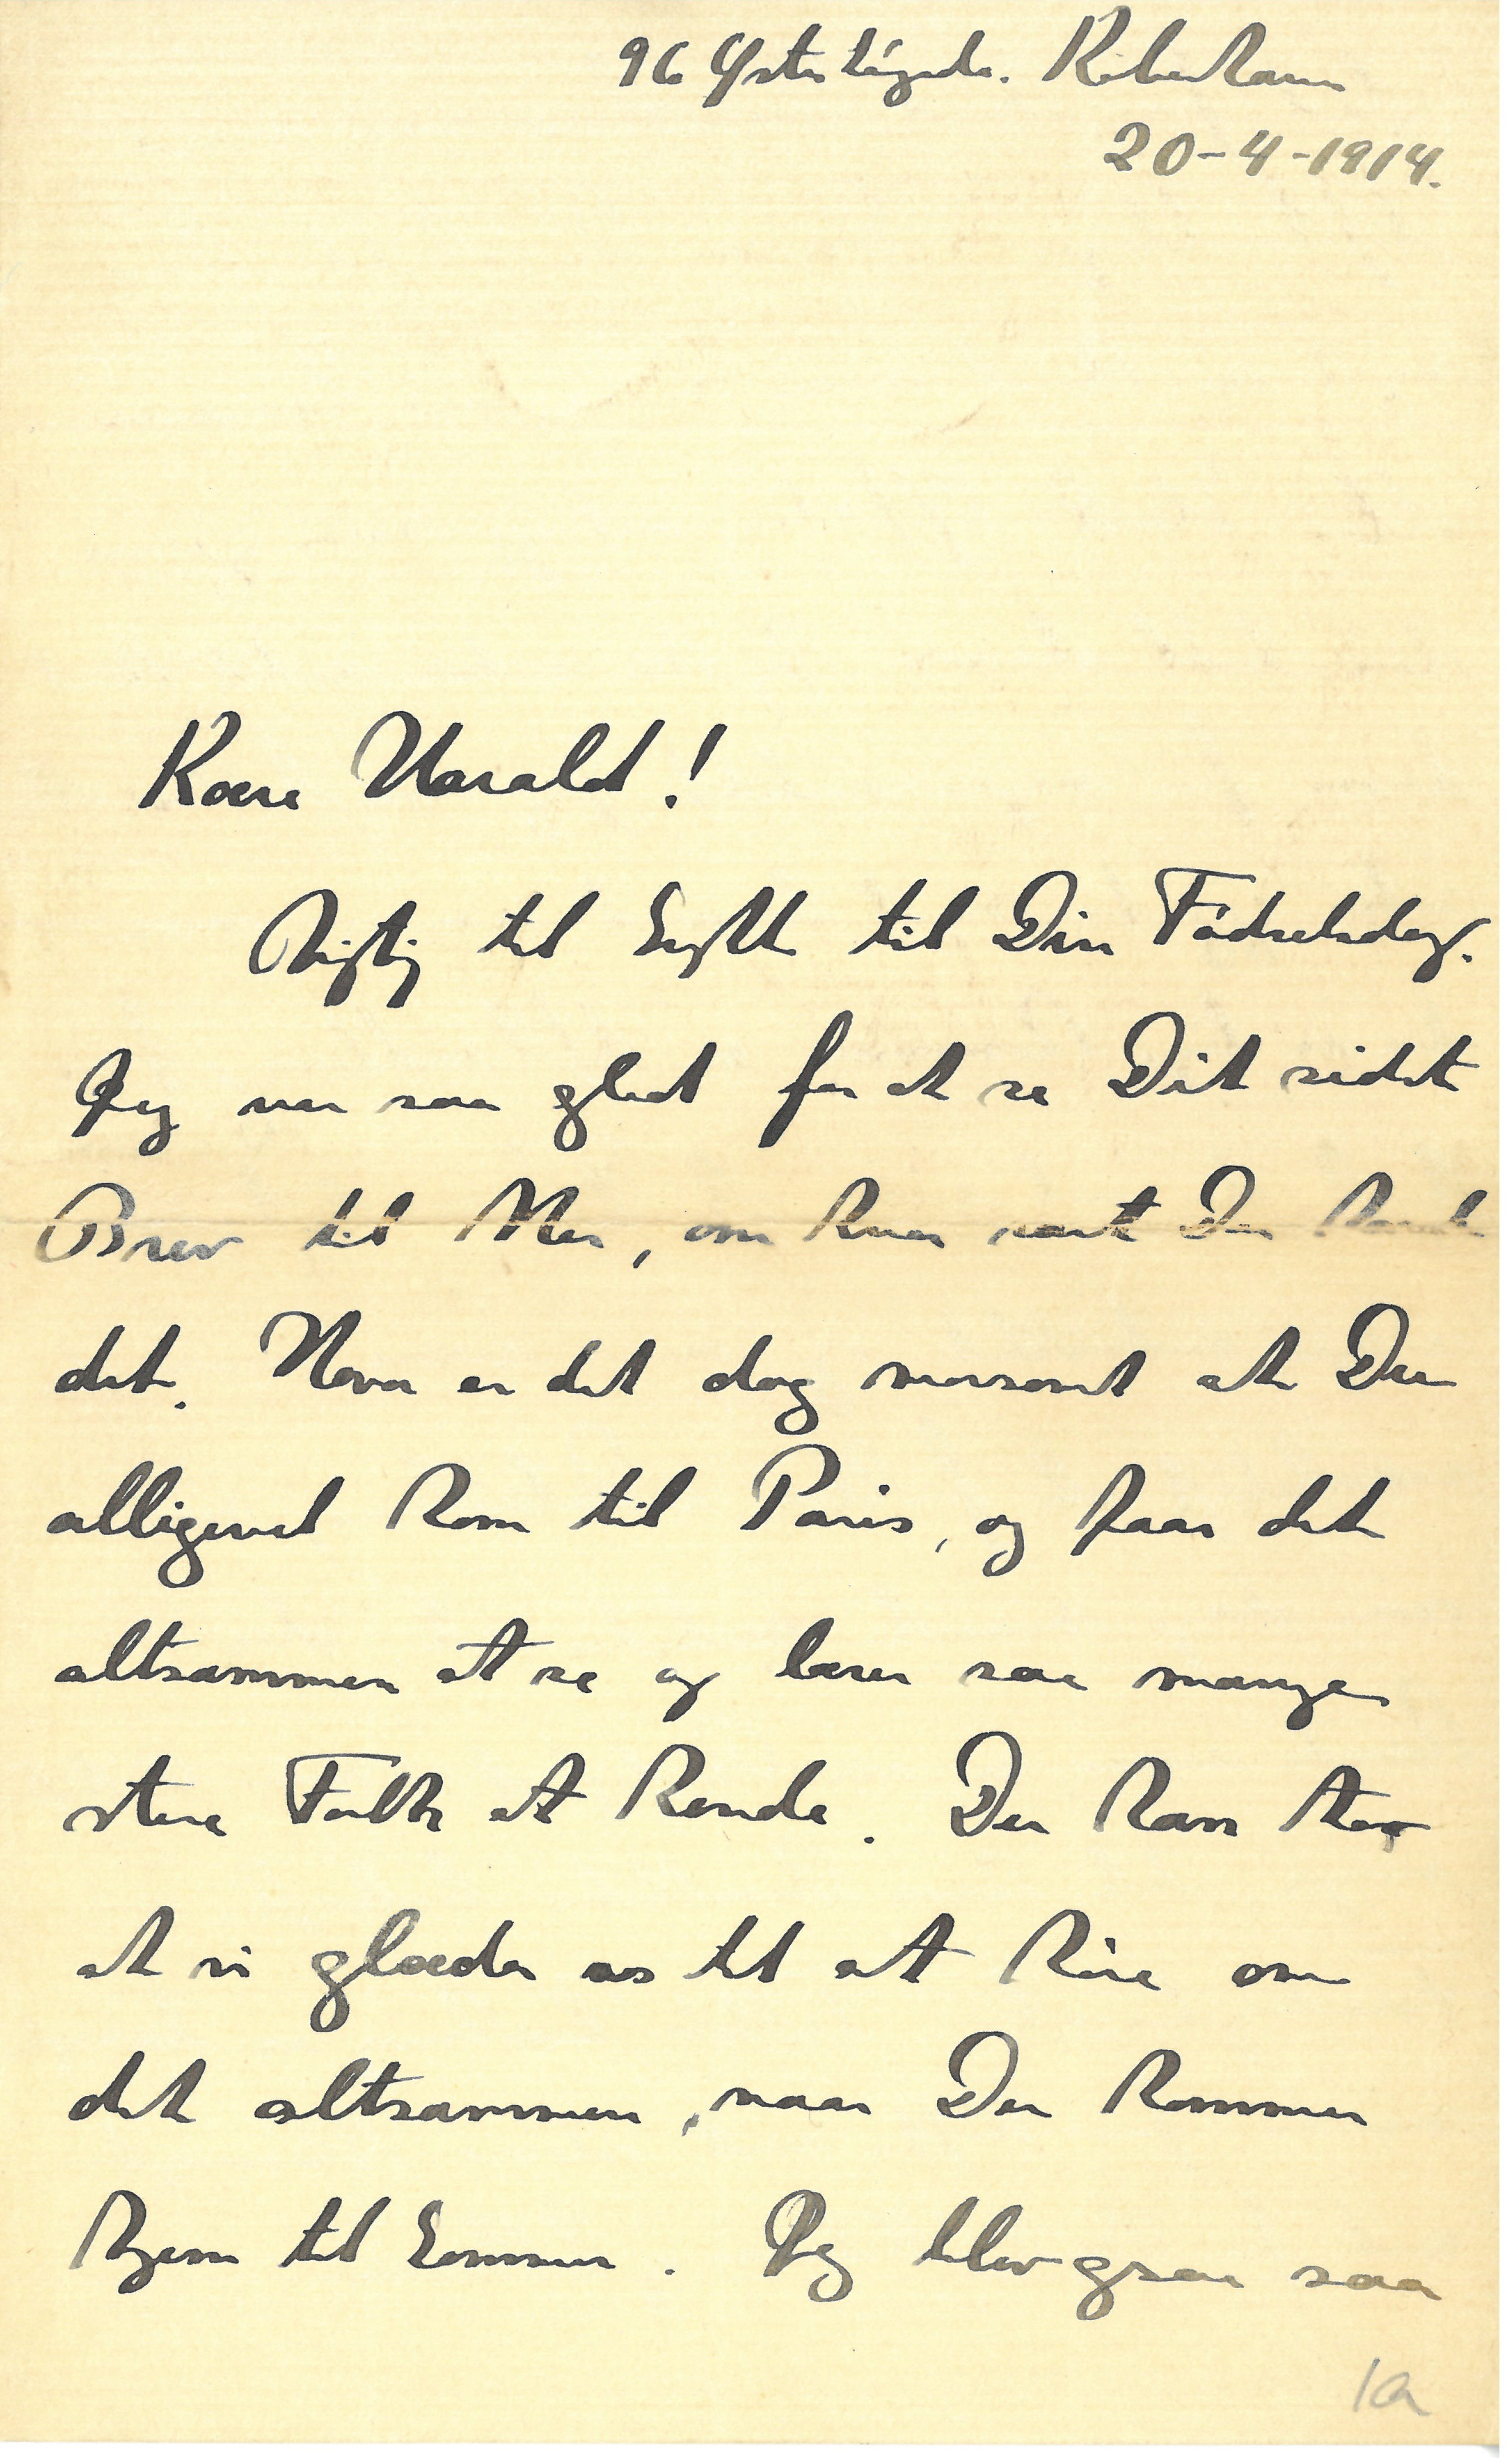 96 Østerbrogade. København
20-4-1914.
Kære Harald!
Rigtig til Lykke til Din Fødselsdag.
Jeg var saa glad for at se Dit sidste
Brev til Mor, om hvor rart Du havde
det. Hvor er det dog morsomt at Du
alligevel kom til Paris, og faar det
altsammen at se og lærer saa mange
store Folk at kende. Du kan tro
at vi glæder os til at høre om
det altsammen, naar Du kommer
hjem til Sommer. Jeg blev graa saa
1a